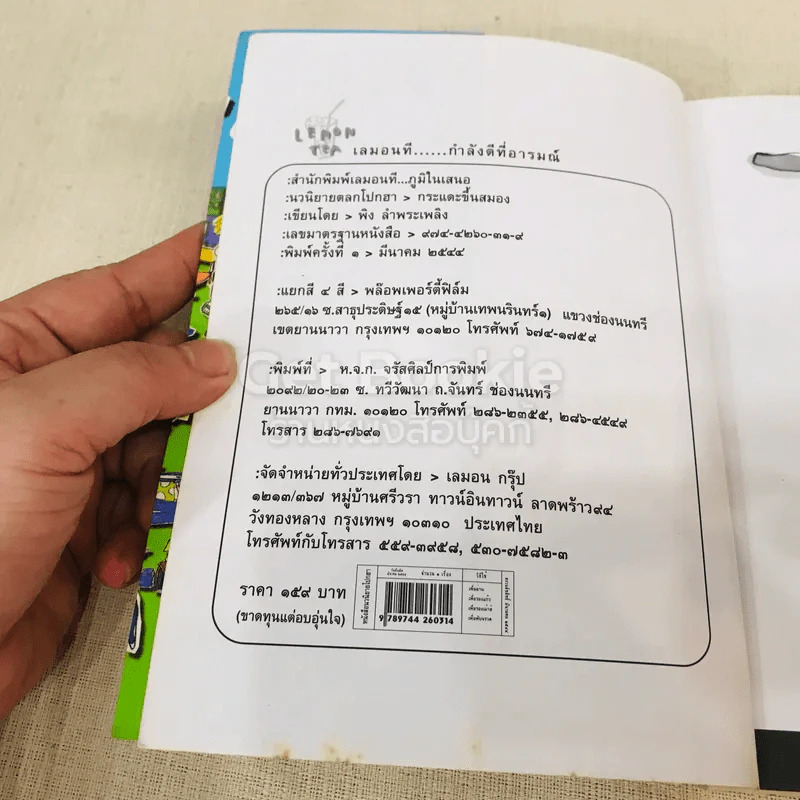 LEMON
TEA
เลมอนที......กำลังดีที่อารมณ์
:สำนักพิมพ์เลมอนที...ภูมิใจเสนอ
:นวนิยายตลกโปกฮา > กระแดะขึ้นสมอง
:เขียนโดย > พิง ลำพระเพลิง
:เลขมาตรฐานหนังสือ > ๙๗๔-๔๒๖๐-๓๑-๙
:พิมพ์ครั้งที่ ๑ > มีนาคม ๒๕๔๔
:แยกสี ๔ สี > พล๊อพเพอร์ตี้ฟิล์ม
๒๖๕/๑๖ ซ.สาธุประดิษฐ์๑๕ (หมู่บ้านเทพนรินทร์๑) แขวงช่องนนทรี
เขตยานนาวา กรุงเทพฯ ๑๐๑๒๐ โทรศัพท์ ๖๗๔-๑๗๕๙
:พิมพ์ที่ > ห.จ.ก. จรัสศิลป์การพิมพ์
๒๐๙๒/๒๐-๒๓ ซ. ทวีวัฒนา ถ.จันทร์ ช่องนนทรี
ยานนาวา กทม. ๑๐๑๒๐ โทรศัพท์ ๒๘๖-๒๓๕๕, ๒๘๖-๔๕๔๙
โทรสาร ๒๘๖-๗๖๙๑
Get Bookie
ร้านหนังสือบุ๊คกี้
:จัดจำหน่ายทั่วประเทศโดย > เลมอน กรุ๊ป
๑๒๑๓/๓๖๗ หมู่บ้านศรีวรา ทาวน์อินทาวน์ ลาดพร้าว๙๔
วังทองหลาง กรุงเทพฯ ๑๐๓๑๐ ประเทศไทย
โทรศัพท์กับโทรสาร ๕๕๙-๓๙๕๘, ๕๓๐-๗๕๘๒-๓
ราคา ๑๕๙ บาท
(ขาดทุนแต่อบอุ่นใจ)
หนังสือนวนิยายโปกฮา
จำนวน ๑ เรื่อง
วิธีใช้
9 789744 260314